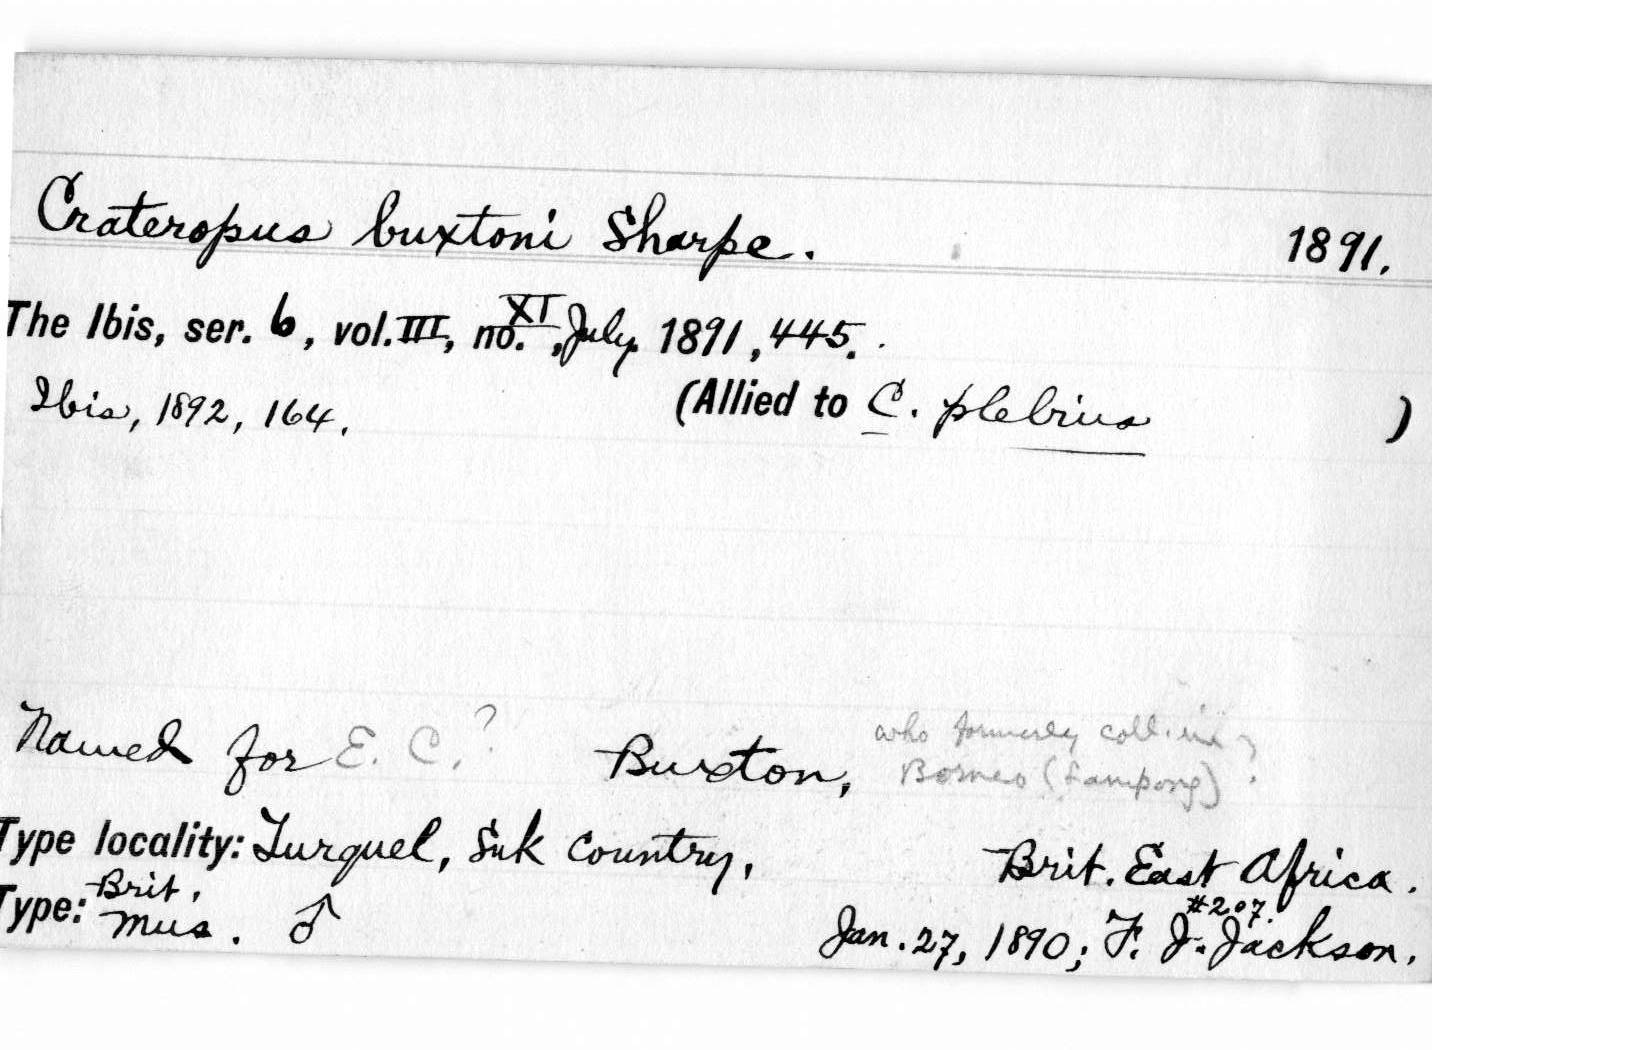 Crateropus buxtoni Sharpe. 1891.
The Ibis, ser. 6, vol. III, no. XI, July 1891, 445.
Ibis, 1892, 164. (Allied to C. plebius )
Named for E. C.? Buxton, who formerly coll. in
Borneo (Lampong)?
Type locality: Turquel, Suk Country, Brit. East Africa.
Type: Brit. Mus. ♂ #207.
Jan. 27, 1890; F. J. Jackson.